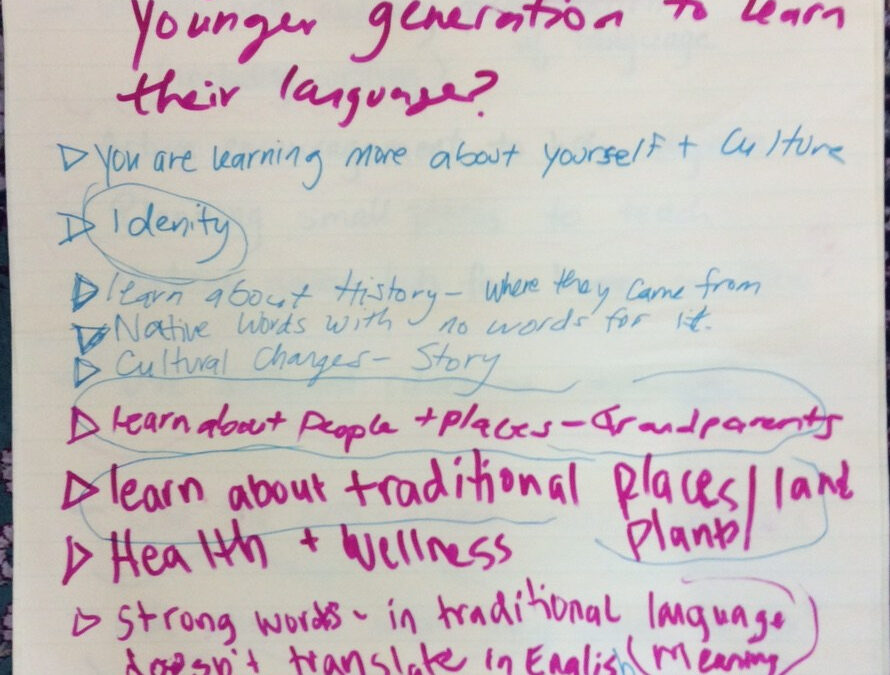 Younger generation to learn
their language?
▷ You are learning more about yourself + Culture
▷ Idenity
▷ learn about History - where they came from
▷ Native words with no words for it.
▷ Cultural Changes - Story
▷ learn about People + places - Grandparents
▷ learn about traditional places/land
plants/
▷ Health + Wellness
▷ Strong words - in traditional language
doesn't translate in English (meaning